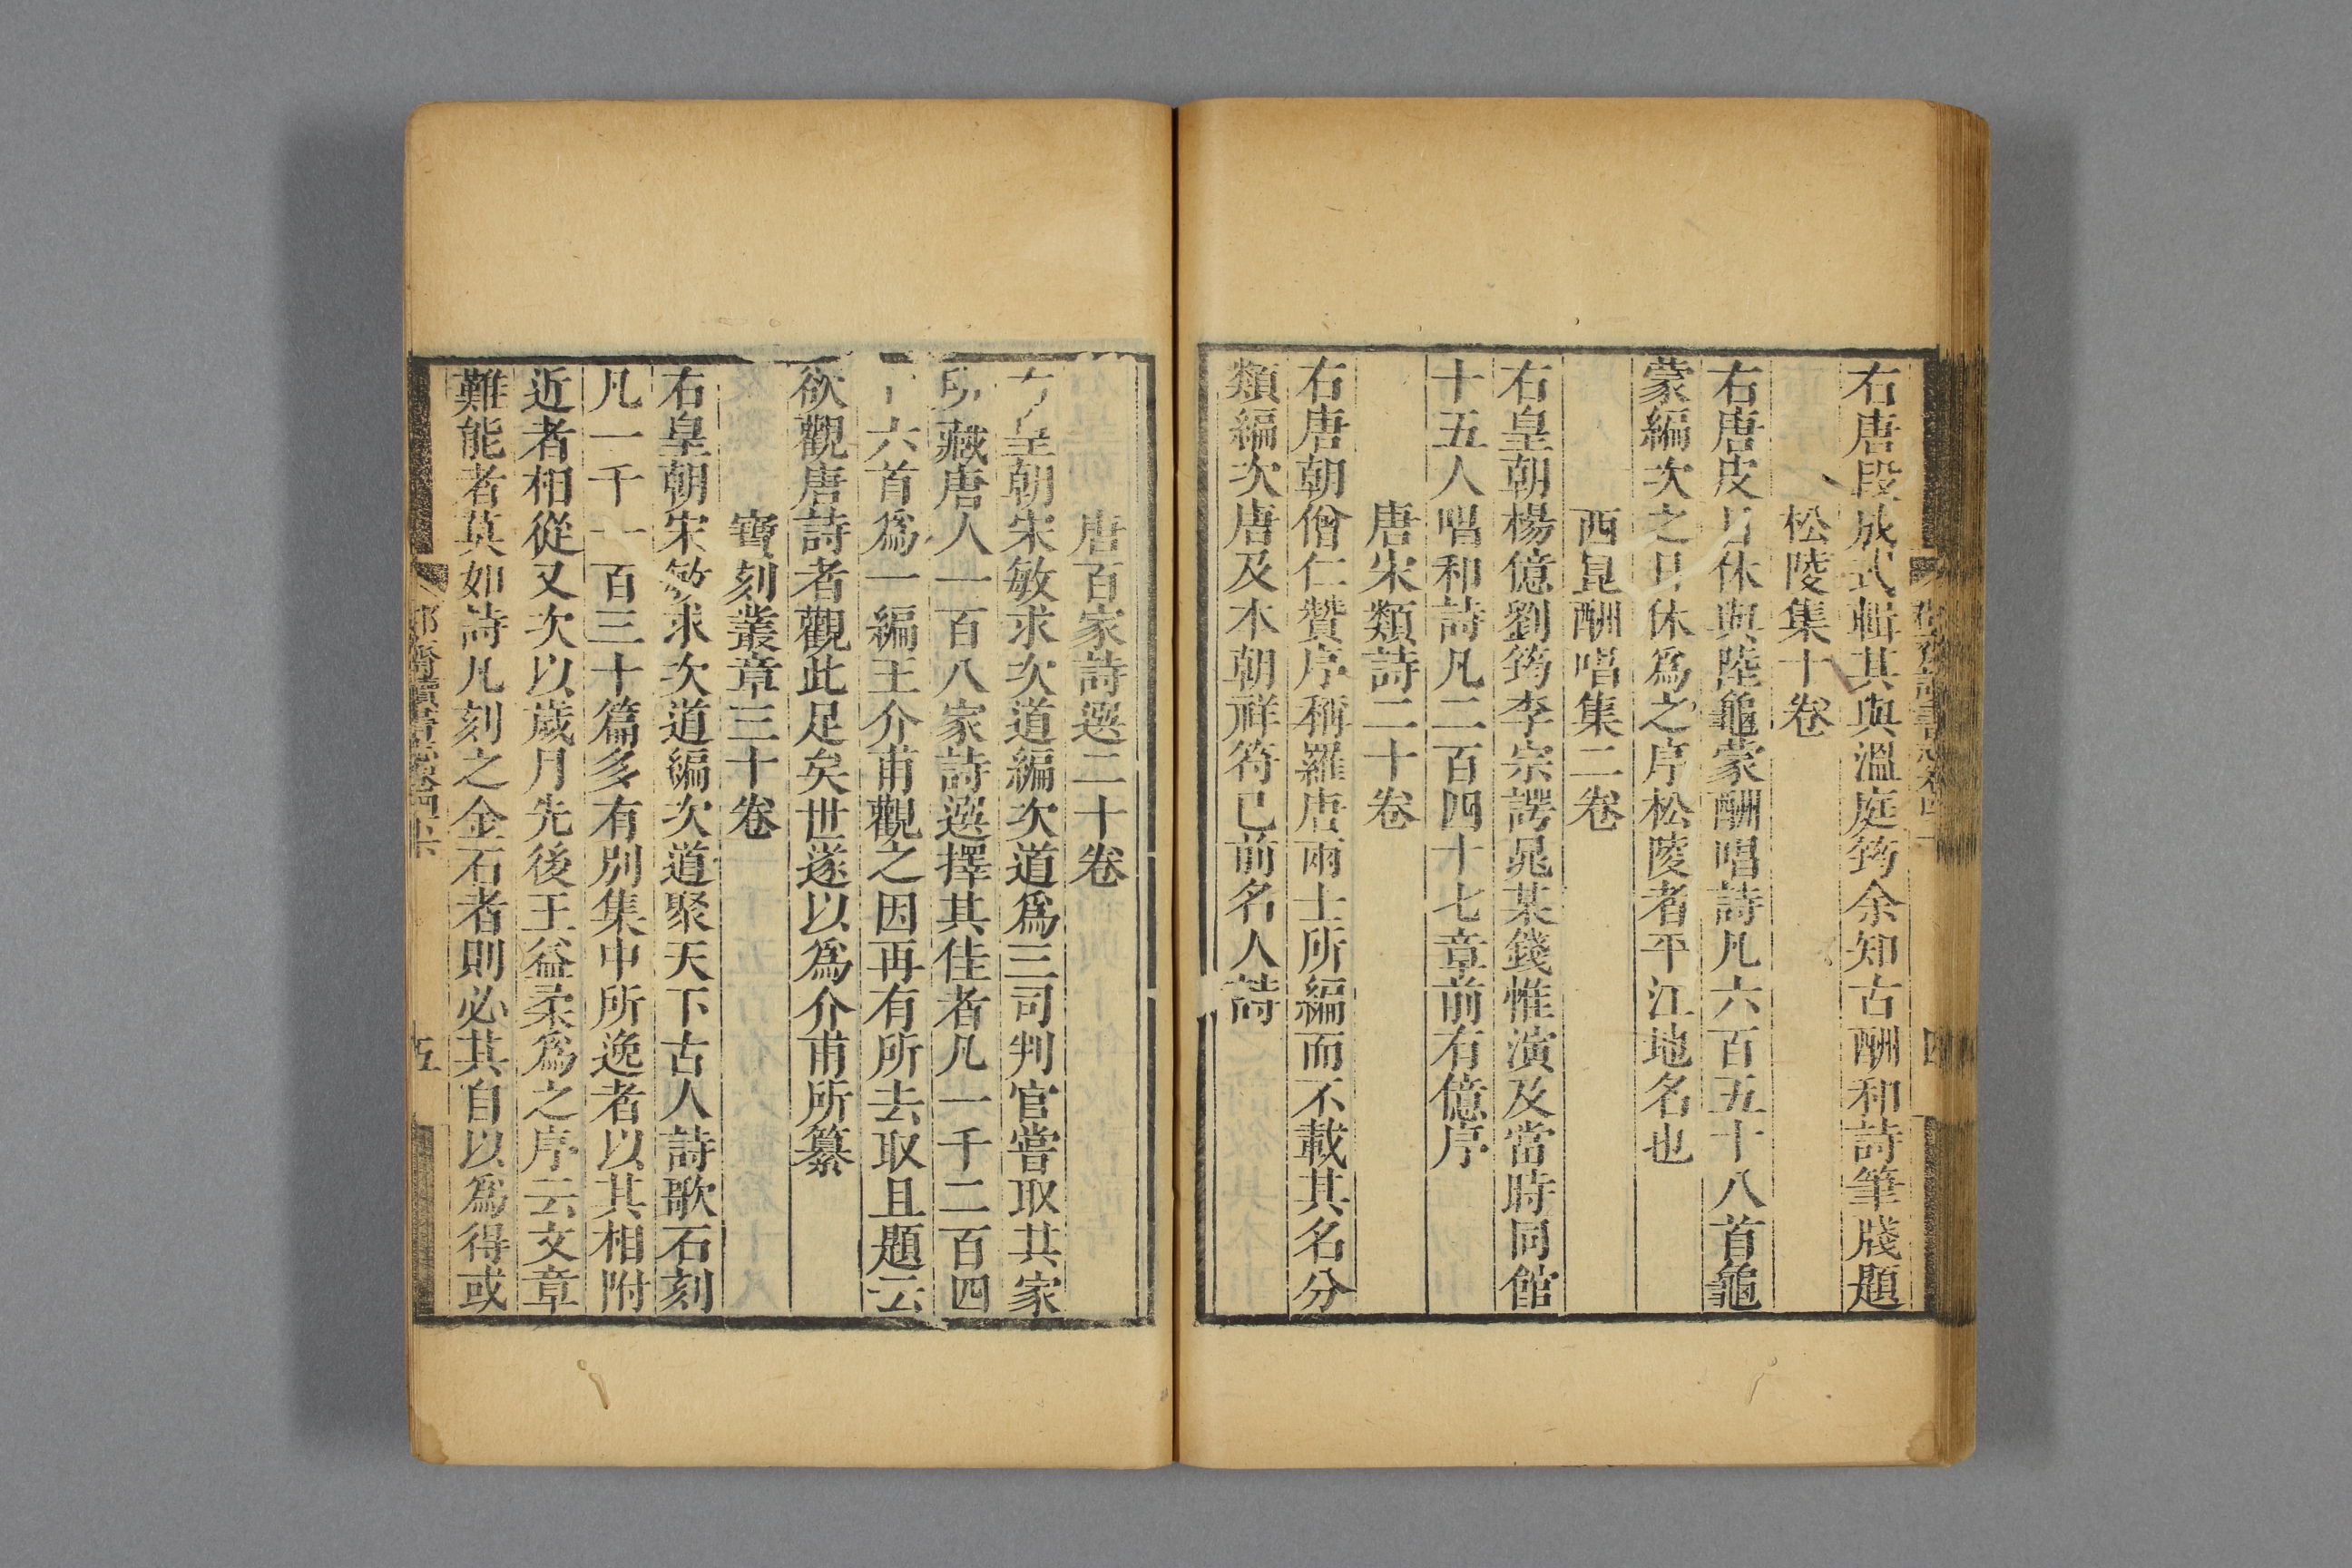 右唐段成式輯其與溫庭筠余知古酬和詩筆牋題
松陵集十卷
右唐皮日休與陸龜蒙酬唱詩凡六百五十八首龜
蒙編次之日休爲之序松陵者平江地名也
西崑酬唱集二卷
右皇朝楊億劉筠李宗諤晁某錢惟演及當時同館
十五人唱和詩凡二百四十七章前有億序
唐宋類詩二十卷
右唐朝僧仁贊序稱羅唐兩士所編而不載其名分
類編次唐及本朝祥符已前名人詩
唐百家詩選二十卷
右皇朝宋敏求次道編次道爲三司判官嘗取其家
所藏唐人一百八家詩選擇其佳者凡一千二百四
十六首爲一編王介甫觀之因再有所去取且題云
欲觀唐詩者觀此足矣世遂以爲介甫所纂
寶刻叢章三十卷
右皇朝宋敏求次道編次道聚天下古人詩歌石刻
凡一千一百三十篇多有別集中所逸者以其相附
近者相從又次以歲月先後王益柔爲之序云文章
難能者莫如詩凡刻之金石者則必其自以爲得或
五